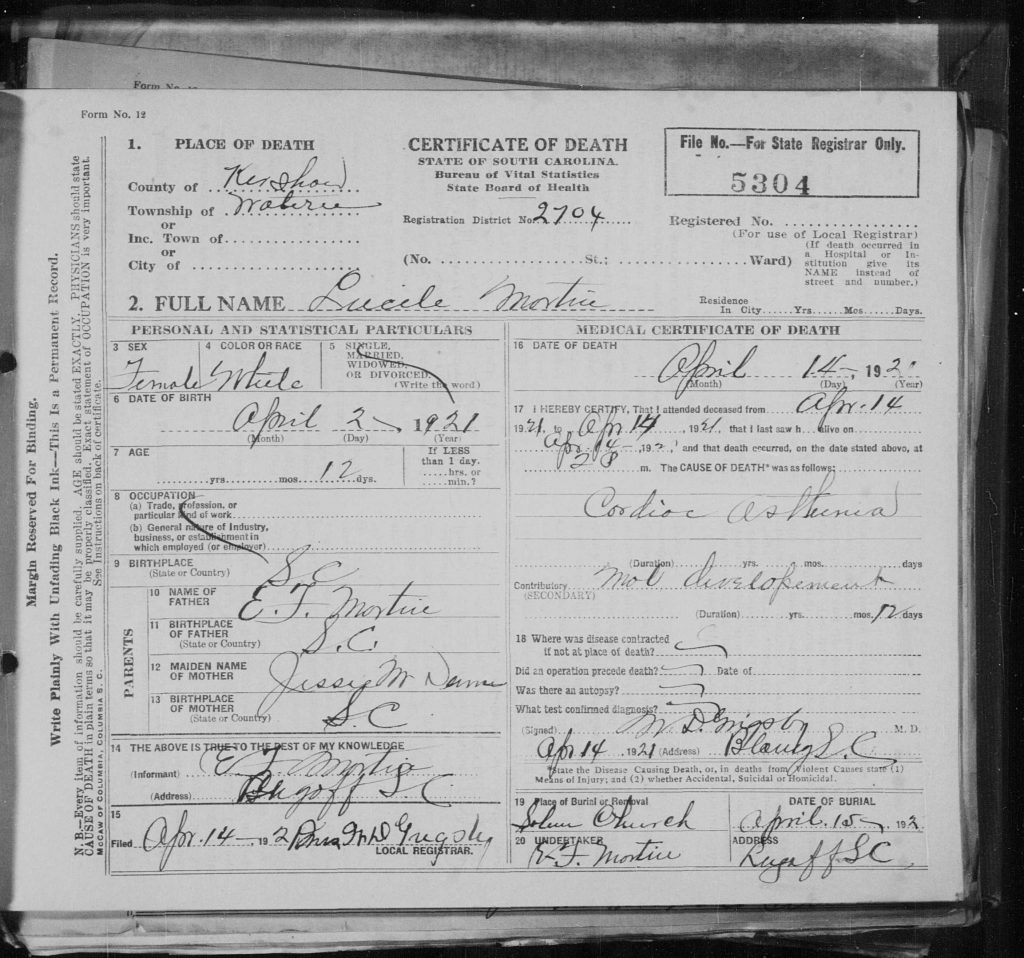 Form No. 12
Form No. 12
1. PLACE OF DEATH
County of Kershaw
Township of Wateree
or
Inc. Town of
or
City of
CERTIFICATE OF DEATH
STATE OF SOUTH CAROLINA.
Bureau of Vital Statistics
State Board of Health
Registration District No. 2704
(No. St.; Ward)
File No.—For State Registrar Only.
5304
Registered No.
(For use of Local Registrar)
(If death occurred in
a Hospital or In-
stitution give its
NAME instead of
street and number.)
2. FULL NAME Lucile
Residence
In City Yrs. Mos. Days.
PERSONAL AND STATISTICAL PARTICULARS
3 SEX
Female
4 COLOR OR RACE
White
5 SINGLE,
MARRIED,
WIDOWED,
OR DIVORCED.
(Write the word)
6 DATE OF BIRTH
April 2 1921
(Month) (Day) (Year)
7 AGE
yrs. mos. 12 dys.
If LESS
than 1 day.
hrs. or
min.?
8 OCCUPATION
(a) Trade, profession, or
particular kind of work
(b) General nature of Industry,
business, or establishment in
which employed (or employer)
9 BIRTHPLACE
(State or Country)
S.C
PARENTS
10 NAME OF
FATHER
E. F.
11 BIRTHPLACE
OF FATHER
(State or Country)
S.C.
12 MAIDEN NAME
OF MOTHER
Jessie M
13 BIRTHPLACE
OF MOTHER
(State or Country)
S.C
14 THE ABOVE IS TRUE TO THE BEST OF MY KNOWLEDGE
(Informant) E F
(Address) S C
15
Filed Apr. 14 192 Grigsby
LOCAL REGISTRAR.
MEDICAL CERTIFICATE OF DEATH
16 DATE OF DEATH
April 14 192
(Month) (Day) (Year)
17 I HEREBY CERTIFY, That I attended deceased from Apr. 14
1921, to Apr 14, 1921, that I last saw h alive on
Apr 14, 192, and that death occurred, on the date stated above, at
m. The CAUSE OF DEATH* was as follows:
Cardiac asthenia
(Duration) yrs. mos. days
Contributory Mal developement
(SECONDARY)
(Duration) yrs. mos. 12 days
18 Where was disease contracted
if not at place of death?
Did an operation precede death? Date of
Was there an autopsy?
What test confirmed diagnosis?
(Signed) W D Grigsby M. D.
Apr 14 1921 (Address) Blaney S.C
*State the Disease Causing Death, or, in deaths from Violent Causes state (1)
Means of Injury; and (2) whether Accidental, Suicidal or Homicidal.
19 Place of Burial or Removal
Church
DATE OF BURIAL
April 15 192
20 UNDERTAKER
E. F.
ADDRESS
Lugoff S C
Margin Reserved For Binding.
Write Plainly With Unfading Black Ink—This Is a Permanent Record.
N. B.—Every item of information should be carefully supplied. AGE should be stated EXACTLY. PHYSICIANS should state
CAUSE OF DEATH in plain terms so that it may be properly classified. Exact statement of OCCUPATION is very important.
See instructions on back of certificate.
McCAW OF COLUMBIA, COLUMBIA S. C.